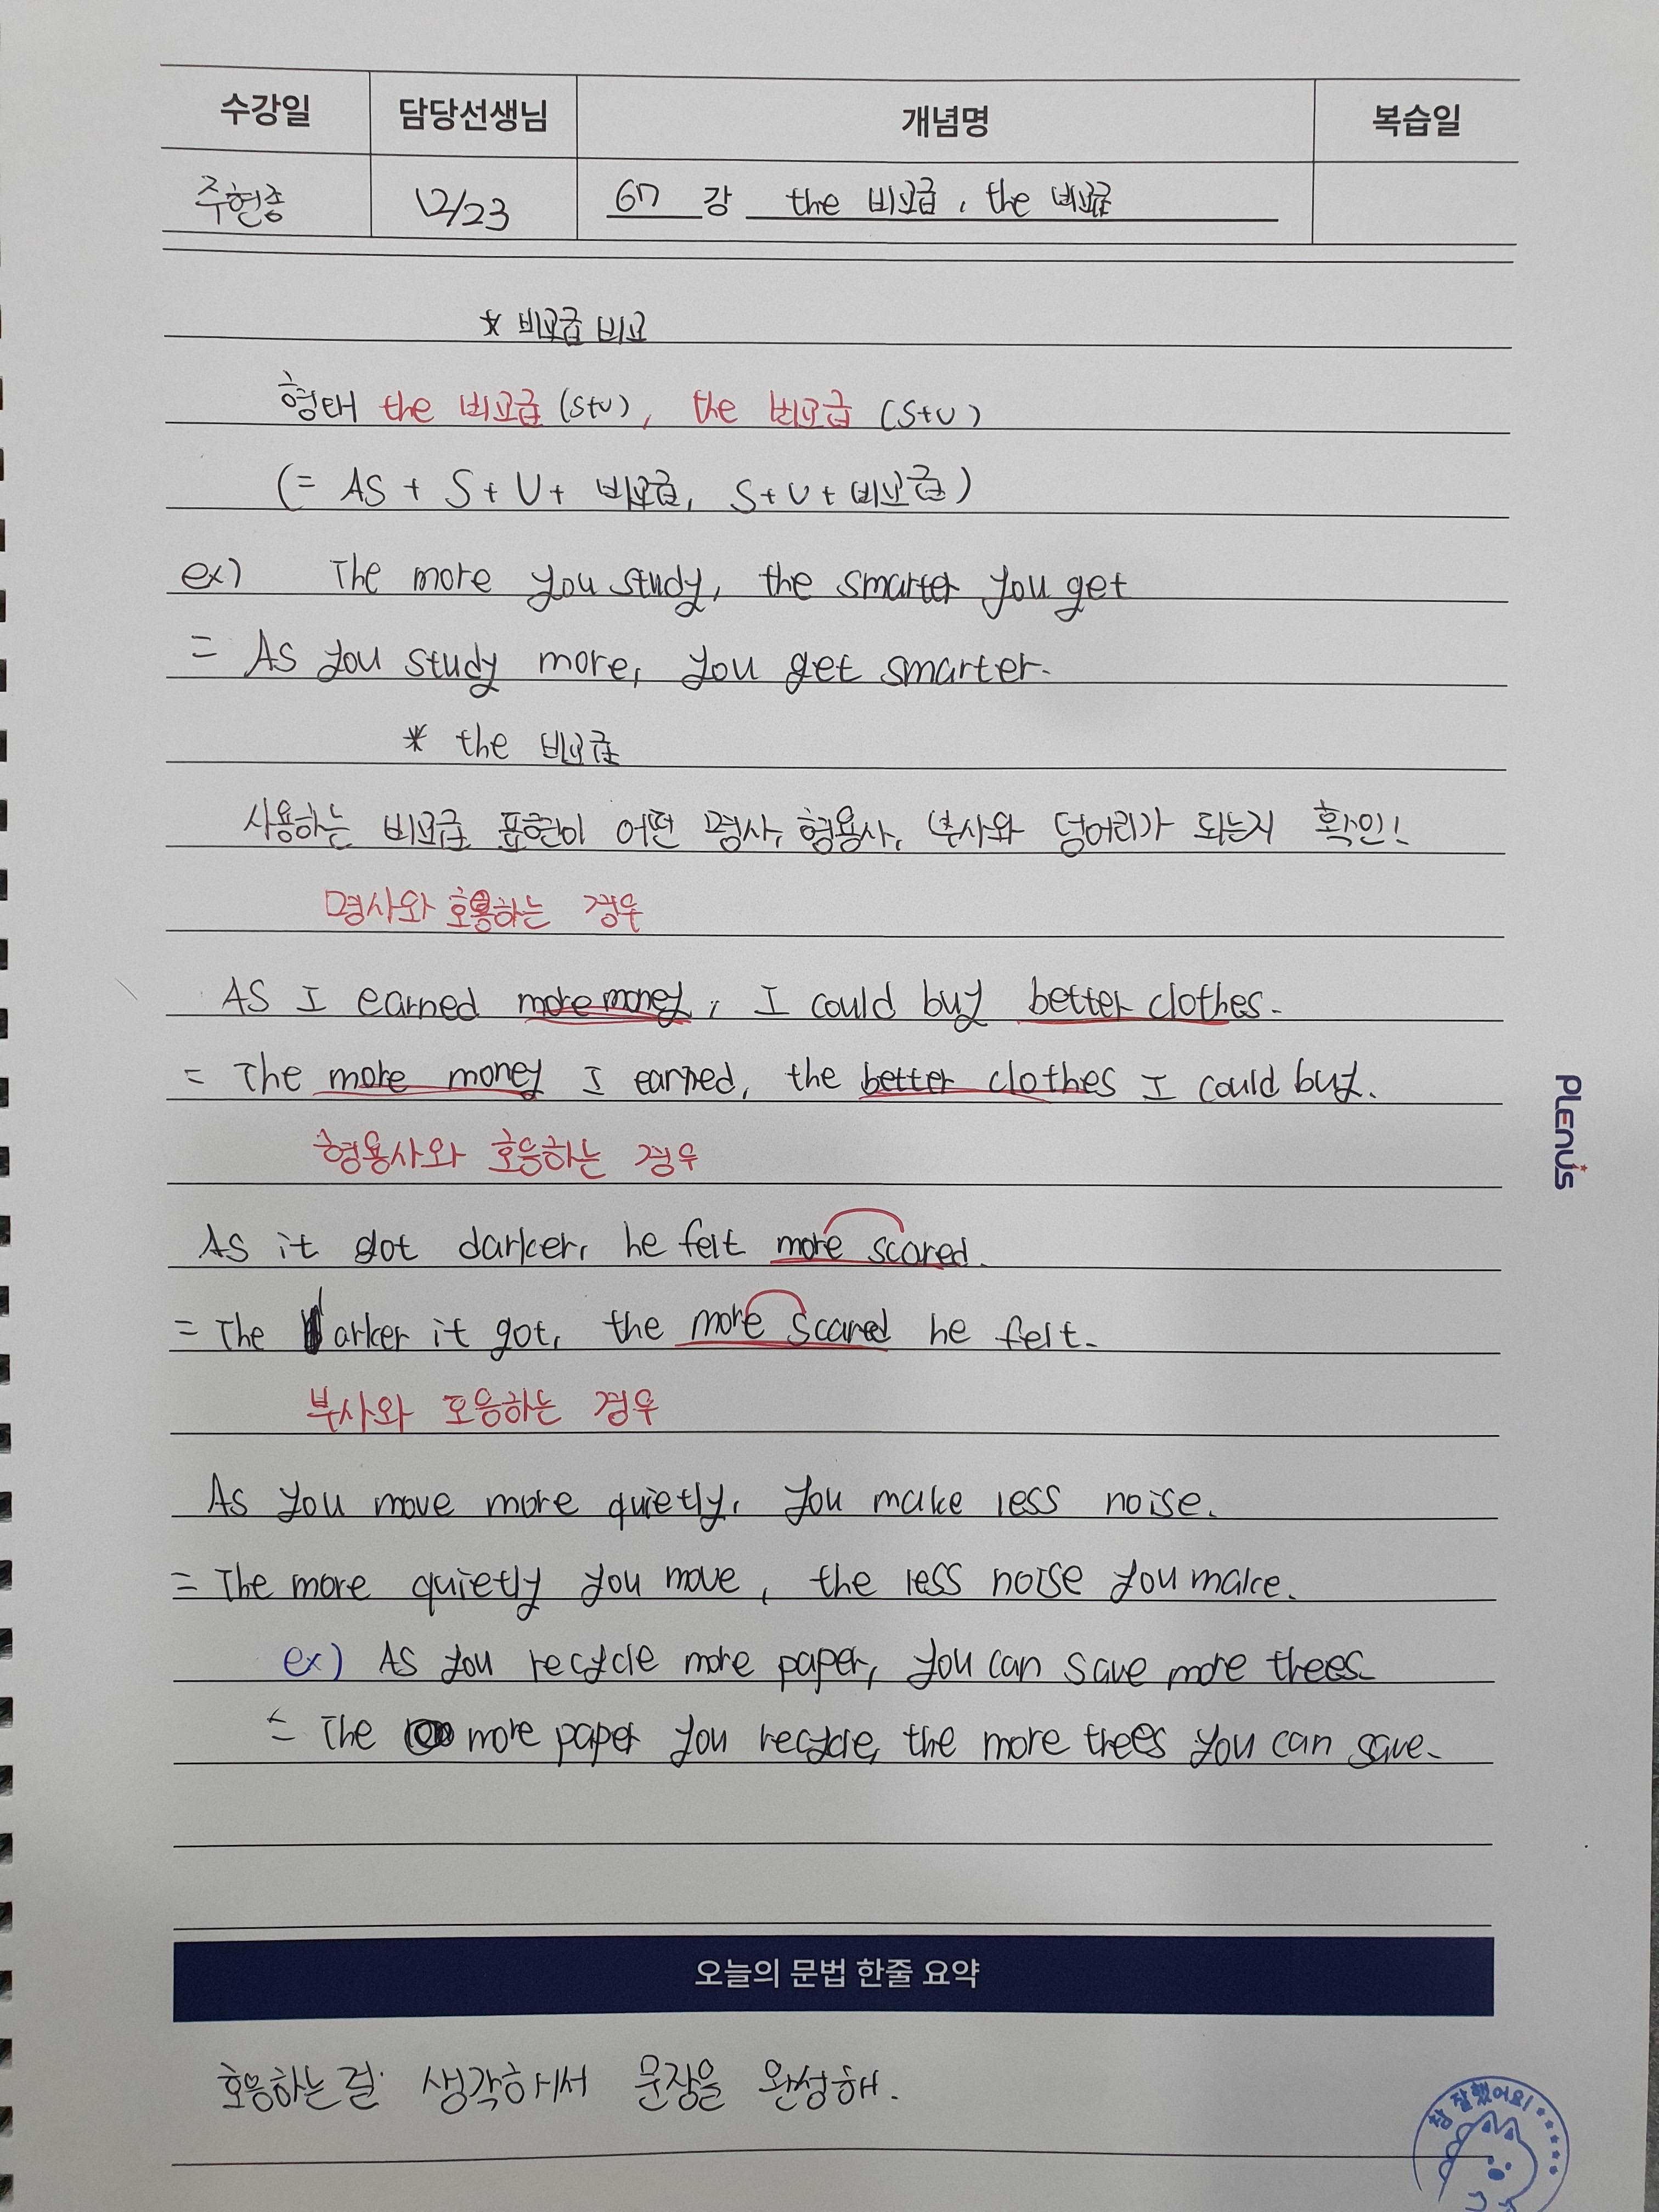 수강일 담당선생님 개념명 복습일
주현종 12/23 67 강 the 비교급, the 비교급
* 비교급 비교
형태 the 비교급 (S+V), the 비교급 (S+V)
(= AS + S + V + 비교급, S+V+비교급)
ex) The more you study, the smarter you get
= As you study more, you get smarter.
* the 비교급
사용하는 비교급 표현이 어떤 명사, 형용사, 부사와 덩어리가 되는지 확인!
명사와 호응하는 경우
AS I earned more money, I could buy better clothes.
= The more money I earned, the better clothes I could buy.
형용사와 호응하는 경우
As it got darker, he felt more scared.
= The darker it got, the more scared he felt.
부사와 호응하는 경우
As you move more quietly, you make less noise.
= The more quietly you move, the less noise you make.
ex) As you recycle more paper, you can save more trees.
= The more paper you recycle, the more trees you can save.
PLENUS
오늘의 문법 한줄 요약
호응하는걸 생각해서 문장을 완성해.
참 잘했어요!